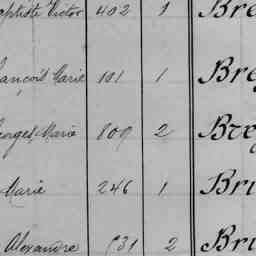 aptiste Victor 402 1 Bre
ançois Marie 101 1 Bre
eorges Marie 809 2 Bre
Marie 246 1 Bri
Alexandre 731 2 Bri